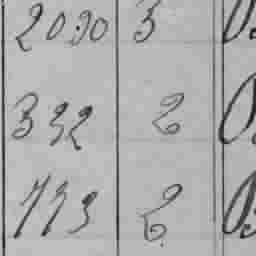 2030 3
332 2
773 2